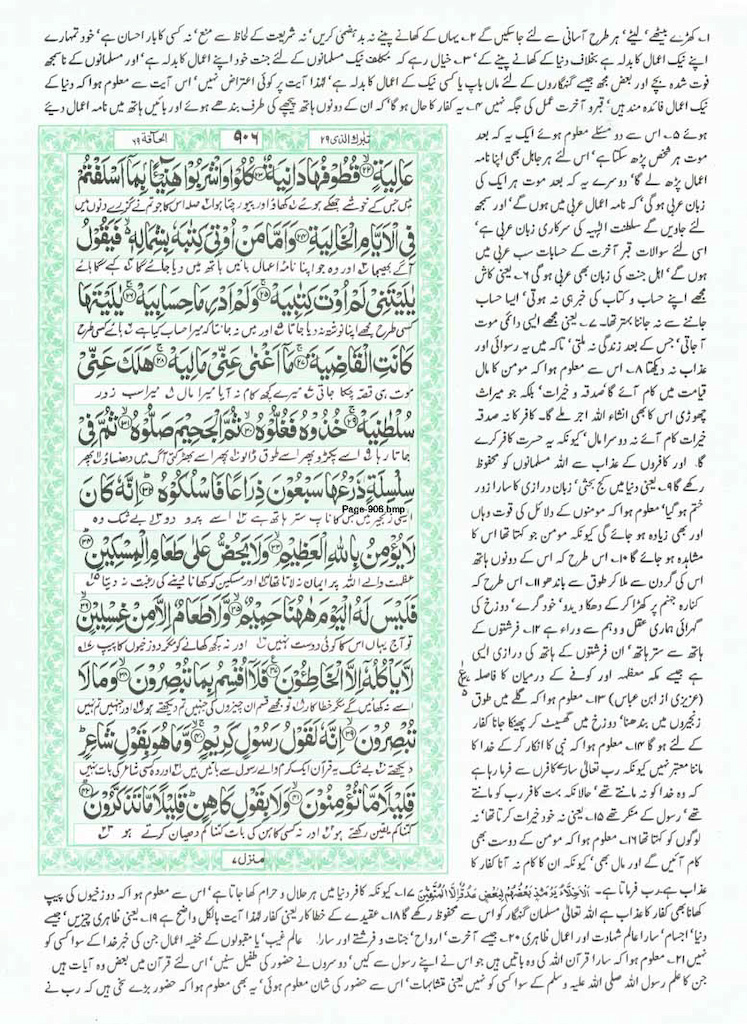 ۱۔ کھڑے بیٹھے' لیٹے' ہر طرح آسانی سے لئے جا سکیں گے ۲۔ یہاں کے کھانے پینے نہ بدہضمی کریں' نہ شریعت کے لحاظ سے منع' نہ کسی کا بار احسان ہے' خود تمہارے
اپنے نیک اعمال کا بدلہ ہے بخلاف دنیا کے کھانے پینے کے' ۳۔ خیال رہے کہ مکلف نیک مسلمانوں کے لئے جنت خود اپنے اعمال کا بدلہ ہے' اور مسلمانوں کے ناسمجھ
فوت شدہ بچے اور بعض مجھ جیسے گنہگاروں کے لئے ماں باپ یا کسی نیک کے اعمال کا بدلہ ہے' لہٰذا آیت پر کوئی اعتراض نہیں' اس آیت سے معلوم ہوا کہ دنیا کے
نیک اعمال فائدہ مند ہیں' قبر و آخرت عمل کی جگہ نہیں ۴۔ یہ کفار کا حال ہو گا' کہ ان کے دونوں ہاتھ پیچھے کی طرف بندھے ہوئے اور بائیں ہاتھ میں نامہ اعمال دیئے
ہوئے ۵۔ اس سے دو مسئلے معلوم ہوئے ایک یہ کہ بعد
موت ہر شخص پڑھ سکتا ہے' اس لئے ہر جاہل بھی اپنا نامہ
اعمال پڑھ لے گا' دوسرے یہ کہ بعد موت ہر ایک کی
زبان عربی ہو گی' کہ نامہ اعمال عربی میں ہوں گے' اور سمجھ
لئے جاویں گے سلطنت الٰہیہ کی سرکاری زبان عربی ہے'
اسی لئے سوالات قبر آخرت کے حسابات سب عربی میں
ہوں گے' اہل جنت کی زبان بھی عربی ہو گی ۶۔ یعنی کاش
مجھے اپنے حساب و کتاب کی خبر ہی نہ ہوتی' ایسا حساب
جاننے سے نہ جاننا بہتر تھا۔ ۷۔ یعنی مجھے ایسی دائمی موت
آ جاتی' جس کے بعد زندگی نہ ملتی' تاکہ میں یہ رسوائی اور
عذاب نہ دیکھتا ۸۔ اس سے معلوم ہوا کہ مومن کا مال
قیامت میں کام آئے گا صدقہ و خیرات' بلکہ جو میراث
چھوڑی اس کا بھی انشاء اللہ اجر ملے گا۔ کافر کا نہ صدقہ
خیرات کام آئے نہ دوسرا مال' کیونکہ یہ حسرت کافر کرے
گا۔ اور کافروں کے عذاب سے اللہ مسلمانوں کو محفوظ
رکھے گا ۹۔ یعنی دنیا میں کج بحثی' زبان درازی کا سارا زور
ختم ہو گیا' معلوم ہوا کہ مومنوں کے دلائل کی قوت وہاں
اور بھی زیادہ ہو جائے گی کیونکہ مومن جو کہتا تھا اس کا
مشاہدہ ہو جائے گا ۱۰۔ اس طرح کہ اس کے دونوں ہاتھ
اس کی گردن سے ملا کر طوق سے باندھو ۱۱۔ اس طرح کہ
کنارہ جہنم پر کھڑا کر کے دھکا دیدو' خود گرے' دوزخ کی
گہرائی ہماری عقل و وہم سے وراء ہے ۱۲۔ فرشتوں کے
ہاتھ سے ستر ہاتھ' ان فرشتوں کے ہاتھ کی درازی ایسی
ہے جیسے مکہ معظمہ اور کوفے کے درمیان کا فاصلہ
(عزیزی از ابن عباس) ۱۳۔ معلوم ہوا کہ گلے میں طوق
زنجیروں میں بندھنا' دوزخ میں گھسیٹ کر پھینکا جانا کفار
کے لئے ہو گا ۱۴۔ معلوم ہوا کہ نبی کا انکار کر کے خدا کا
ماننا معتبر نہیں کیونکہ رب تعالیٰ سارے کافروں سے فرما رہا ہے
کہ وہ خدا کو نہ مانتے تھے' حالانکہ بہت کافر رب کو مانتے
تھے' رسول کے منکر تھے ۱۵۔ یعنی نہ خود خیرات کرتا تھا' نہ
لوگوں کو کہتا تھا ۱۶۔ معلوم ہوا کہ مومن کے دوست بھی
کام آئیں گے اور مال بھی' کیونکہ ان کا کام نہ آنا کفار کا
تبارک الذی ۲۹
۹۰۶
الحآقة ۶۹
عَالِيَةٍ ۝ قُطُوفُهَا دَانِيَةٌ ۝ كُلُوا وَاشْرَبُوا هَنِيْٓئًا بِمَآ اَسْلَفْتُمْ
میں جس کے خوشے جھکے ہوئے کھاؤ اور پیو رچتا ہوا صلہ اس کا جو تم نے گزرے دنوں میں
فِي الْاَيَّامِ الْخَالِيَةِ ۝ وَاَمَّا مَنْ اُوْتِيَ كِتٰبَهٗ بِشِمَالِهٖ فَيَقُوْلُ
آگے بھیجا اور وہ جو اپنا نامہ اعمال بائیں ہاتھ میں دیا جائے گا کہے گا ہائے
يٰلَيْتَنِيْ لَمْ اُوْتَ كِتٰبِيَهْ ۝ وَلَمْ اَدْرِ مَا حِسَابِيَهْ ۝ يٰلَيْتَهَا
کسی طرح مجھے اپنا نوشتہ نہ دیا جاتا اور میں نہ جانتا کہ میرا حساب کیا ہے ہائے کسی طرح
كَانَتِ الْقَاضِيَةَ ۝ مَآ اَغْنٰى عَنِّيْ مَالِيَهْ ۝ هَلَكَ عَنِّيْ
موت ہی قصہ چکا جاتی میرے کچھ کام نہ آیا میرا مال میرا سب زور
سُلْطٰنِيَهْ ۝ خُذُوْهُ فَغُلُّوْهُ ۝ ثُمَّ الْجَحِيْمَ صَلُّوْهُ ۝ ثُمَّ فِيْ
جاتا رہا اسے پکڑو پھر اسے طوق ڈالو پھر اسے بھڑکتی آگ میں دھنساؤ پھر
سِلْسِلَةٍ ذَرْعُهَا سَبْعُوْنَ ذِرَاعًا فَاسْلُكُوْهُ ۝ اِنَّهٗ كَانَ
ایسی زنجیر میں جس کا ناپ ستر ہاتھ ہے اسے پرو دو بے شک وہ
Page-906.bmp
لَا يُؤْمِنُ بِاللّٰهِ الْعَظِيْمِ ۝ وَلَا يَحُضُّ عَلٰى طَعَامِ الْمِسْكِيْنِ ۝
عظمت والے اللہ پر ایمان نہ لاتا تھا اور مسکین کو کھانا دینے کی رغبت نہ دیتا
فَلَيْسَ لَهُ الْيَوْمَ هٰهُنَا حَمِيْمٌ ۝ وَّلَا طَعَامٌ اِلَّا مِنْ غِسْلِيْنٍ ۝
تو آج یہاں اس کا کوئی دوست نہیں اور نہ کچھ کھانے کو مگر دوزخیوں کا پیپ
لَّا يَاْكُلُهٗٓ اِلَّا الْخَاطِـُٔوْنَ ۝ فَلَآ اُقْسِمُ بِمَا تُبْصِرُوْنَ ۝ وَمَا لَا
اسے نہ کھائیں گے مگر خطاکار تو مجھے قسم ان چیزوں کی جنہیں تم دیکھتے ہو اور جنہیں تم نہیں
تُبْصِرُوْنَ ۝ اِنَّهٗ لَقَوْلُ رَسُوْلٍ كَرِيْمٍ ۝ وَّمَا هُوَ بِقَوْلِ شَاعِرٍ
دیکھتے بے شک یہ قرآن ایک کرم والے رسول سے باتیں ہیں اور وہ کسی شاعر کی بات نہیں
قَلِيْلًا مَّا تُؤْمِنُوْنَ ۝ وَلَا بِقَوْلِ كَاهِنٍ قَلِيْلًا مَّا تَذَكَّرُوْنَ ۝
کتنا کم یقین رکھتے ہو اور نہ کسی کاہن کی بات کتنا کم دھیان کرتے ہو
منزل ۷
عذاب ہے رب فرماتا ہے۔ اَلْاَخِلَّاءُ يَوْمَئِذٍ بَعْضُهُمْ لِبَعْضٍ عَدُوٌّ اِلَّا الْمُتَّقِيْنَ ۱۷۔ کیونکہ کافر دنیا میں ہر حلال و حرام کھا جاتا ہے' اس سے معلوم ہوا کہ دوزخیوں کی پیپ
کھانا بھی کفار کا عذاب ہے اللہ تعالیٰ مسلمان گنہگار کو اس سے محفوظ رکھے گا ۱۸۔ عقیدے کے خطاکار یعنی کفار لہٰذا آیت بالکل واضح ہے ۱۹۔ یعنی ظاہری چیزیں' جیسے
دنیا' اجسام' سارا عالم شہادت اور اعمال ظاہری ۲۰۔ جیسے آخرت' ارواح' جنات و فرشتے اور سارا عالم غیب' یا مقبولوں کے خفیہ اعمال جن کی خبر خدا کے سوا کسی کو
نہیں ۲۱۔ معلوم ہوا کہ سارا قرآن اللہ کی وہ باتیں ہیں جو اس نے اپنے رسول سے کیں' دوسروں نے حضور کی طفیل سنیں' اس لئے قرآن میں بعض وہ آیات ہیں
جن کا علم رسول اللہ صلی اللہ علیہ وسلم کے سوا کسی کو نہیں یعنی متشابہات' اس سے حضور کی شان معلوم ہوئی' یہ بھی معلوم ہوا کہ حضور بڑے سخی ہیں کہ رب نے